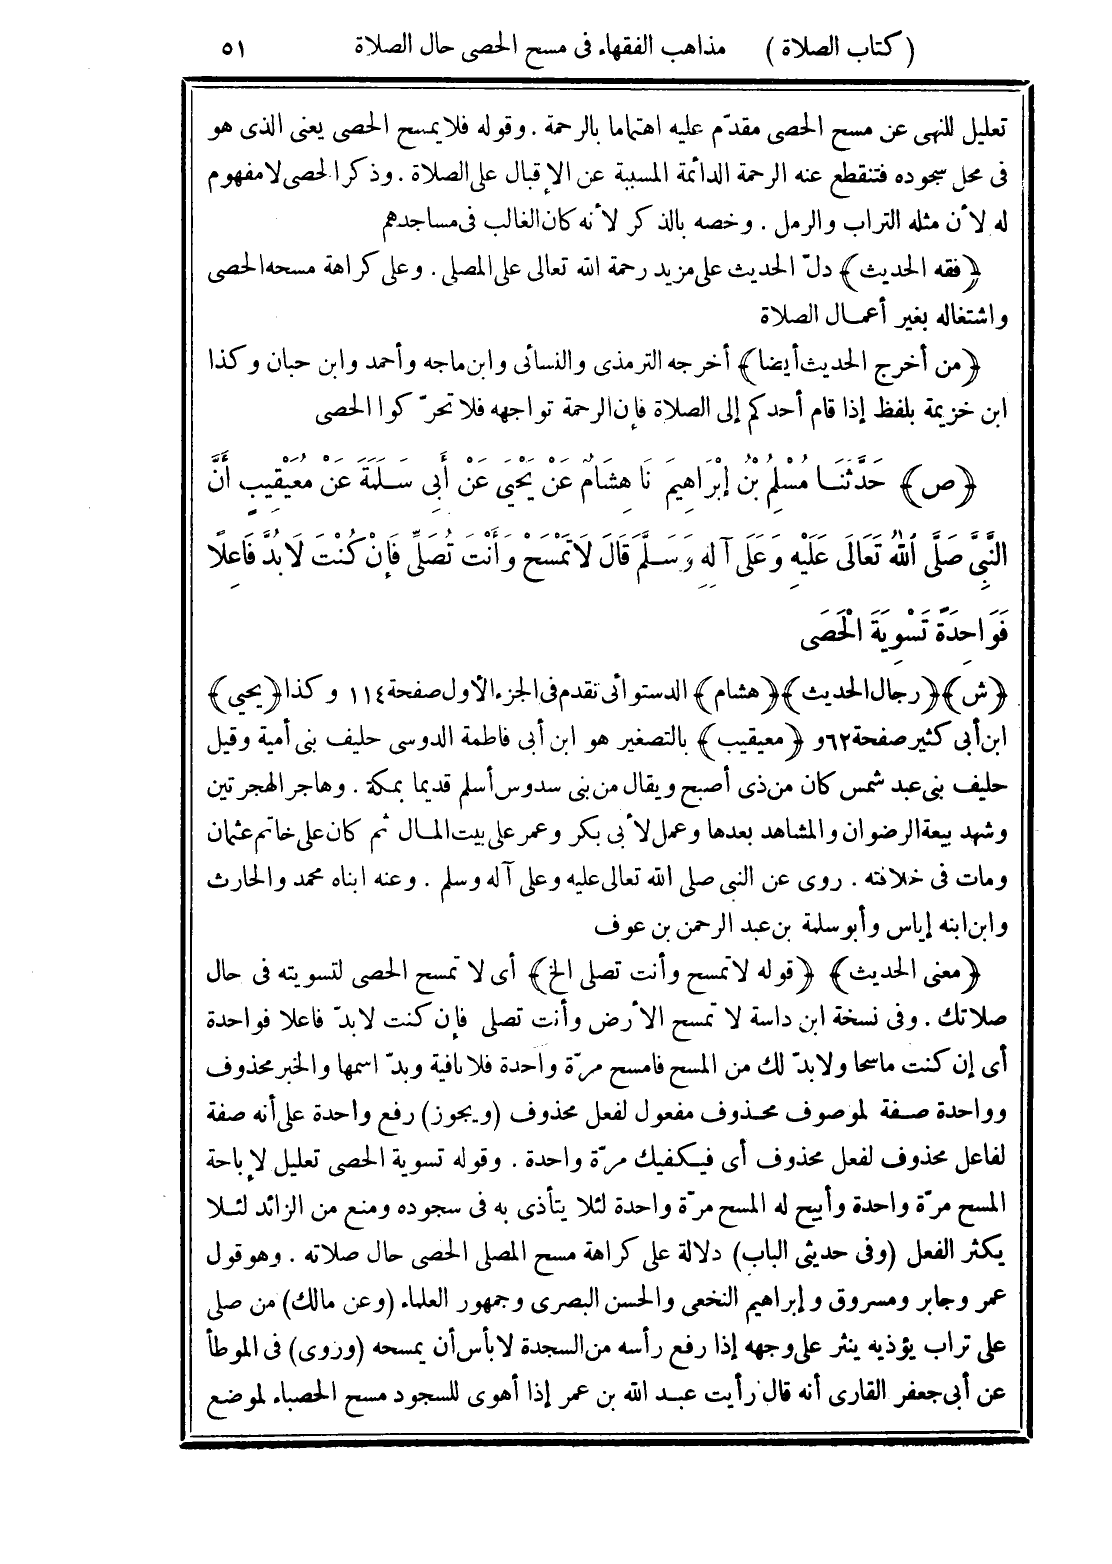 (كتاب الصلاة) مذاهب الفقهاء فى مسح الحصى حال الصلاة ٥١
تعليل للنهى عن مسح الحصى مقدّم عليه اهتماما بالرحمة . وقوله فلا يمسح الحصى يعنى الذى هو
فى محل سجوده فتنقطع عنه الرحمة الدائمة المسببة عن الإقبال على الصلاة . وذكر الحصى لا مفهوم
له لأن مثله التراب والرمل . وخصه بالذكر لأنه كان الغالب فى مساجدهم
﴿فقه الحديث﴾ دلّ الحديث على مزيد رحمة الله تعالى على المصلى . وعلى كراهة مسحه الحصى
واشتغاله بغير أعمال الصلاة
﴿من أخرج الحديث أيضا﴾ أخرجه الترمذى والنسائى وابن ماجه وأحمد وابن حبان وكذا
ابن خزيمة بلفظ إذا قام أحدكم إلى الصلاة فإن الرحمة تواجهه فلا تحرّكوا الحصى
﴿ص﴾ حَدَّثَنَا مُسْلِمُ بْنُ إِبْرَاهِيمَ نَا هِشَامٌ عَنْ يَحْيَى عَنْ أَبِى سَلَمَةَ عَنْ مُعَيْقِيبٍ أَنَّ
النَّبِىَّ صَلَّى اللهُ تَعَالَى عَلَيْهِ وَعَلَى آلِهِ وَسَلَّمَ قَالَ لَا تَمْسَحْ وَأَنْتَ تُصَلِّى فَإِنْ كُنْتَ لَا بُدَّ فَاعِلًا
فَوَاحِدَةً تَسْوِيَةَ الْحَصَى
﴿ش﴾ ﴿رجال الحديث﴾ ﴿هشام﴾ الدستوائى تقدم فى الجزء الأول صفحة ١١٤ وكذا ﴿يحيى﴾
ابن أبى كثير صفحة ٦٢ و ﴿معيقيب﴾ بالتصغير هو ابن أبى فاطمة الدوسى حليف بنى أمية وقيل
حليف بنى عبد شمس كان من ذى أصبح ويقال من بنى سدوس أسلم قديما بمكة . وهاجر الهجرتين
وشهد بيعة الرضوان والمشاهد بعدها وعمل لأبى بكر وعمر على بيت المال ثم كان على خاتم عثمان
ومات فى خلافته . روى عن النبي صلى الله تعالى عليه وعلى آله وسلم . وعنه ابناه محمد والحارث
وابن ابنه إياس وأبو سلمة بن عبد الرحمن بن عوف
﴿معنى الحديث﴾ ﴿قوله لا تمسح وأنت تصلى الخ﴾ أى لا تمسح الحصى لتسويته فى حال
صلاتك . وفى نسخة ابن داسة لا تمسح الأرض وأنت تصلى فإن كنت لا بدّ فاعلا فواحدة
أى إن كنت ماسحا ولا بدّ لك من المسح فامسح مرّة واحدة فلا نافية وبدّ اسمها والخبر محذوف
وواحدة صفة لموصوف محذوف مفعول لفعل محذوف (ويجوز) رفع واحدة على أنه صفة
لفاعل محذوف لفعل محذوف أى فيكفيك مرّة واحدة . وقوله تسوية الحصى تعليل لإباحة
المسح مرّة واحدة وأبيح له المسح مرّة واحدة لئلا يتأذى به فى سجوده ومنع من الزائد لئلا
يكثر الفعل (وفى حديثى الباب) دلالة على كراهة مسح المصلى الحصى حال صلاته . وهو قول
عمر وجابر ومسروق وإبراهيم النخعى والحسن البصرى وجمهور العلماء (وعن مالك) من صلى
على تراب يؤذيه ينثر على وجهه إذا رفع رأسه من السجدة لا بأس أن يمسحه (وروى) فى الموطأ
عن أبى جعفر القارى أنه قال رأيت عبد الله بن عمر إذا أهوى للسجود مسح الحصباء لموضع